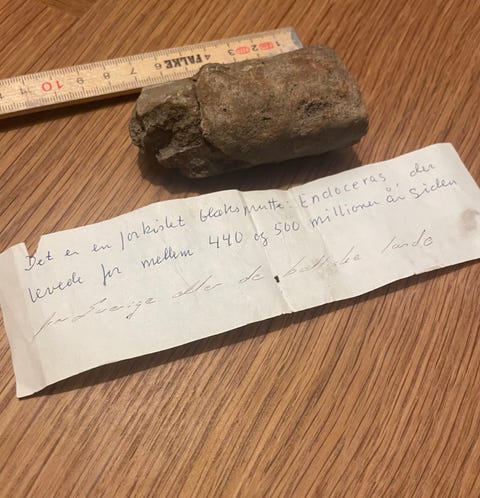 FALKE
1 2 3 4 6 7 8 9 10
Det er en forkislet blæksprutte: Endoceras der
levede for mellem 440 og 500 millioner år siden
fra Sverige eller de baltiske lande